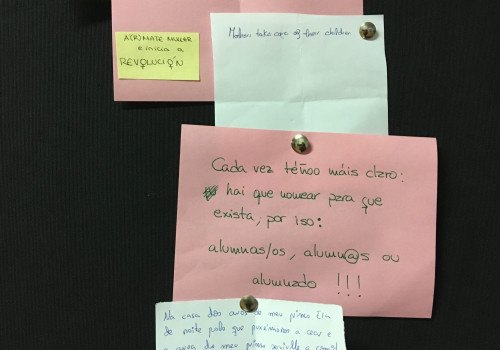 A(R)MATE MULLER
E INICIA A
REVOLUCIÓN
Mothers take care of their children
Cada vez téñoo máis claro:
hai que nomear para que
exista, por iso:
alumnas/os, alumn@s ou
alumnado !!!
Na casa dos avós do meu primo Elm
de noite polo que puxémonos a cear e
a avoa do meu primo